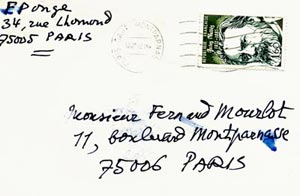 F Ponge
34, rue Lhomond
75005 PARIS
Monsieur Fernand Mourlot
11, boulevard Montparnasse
75006 PARIS